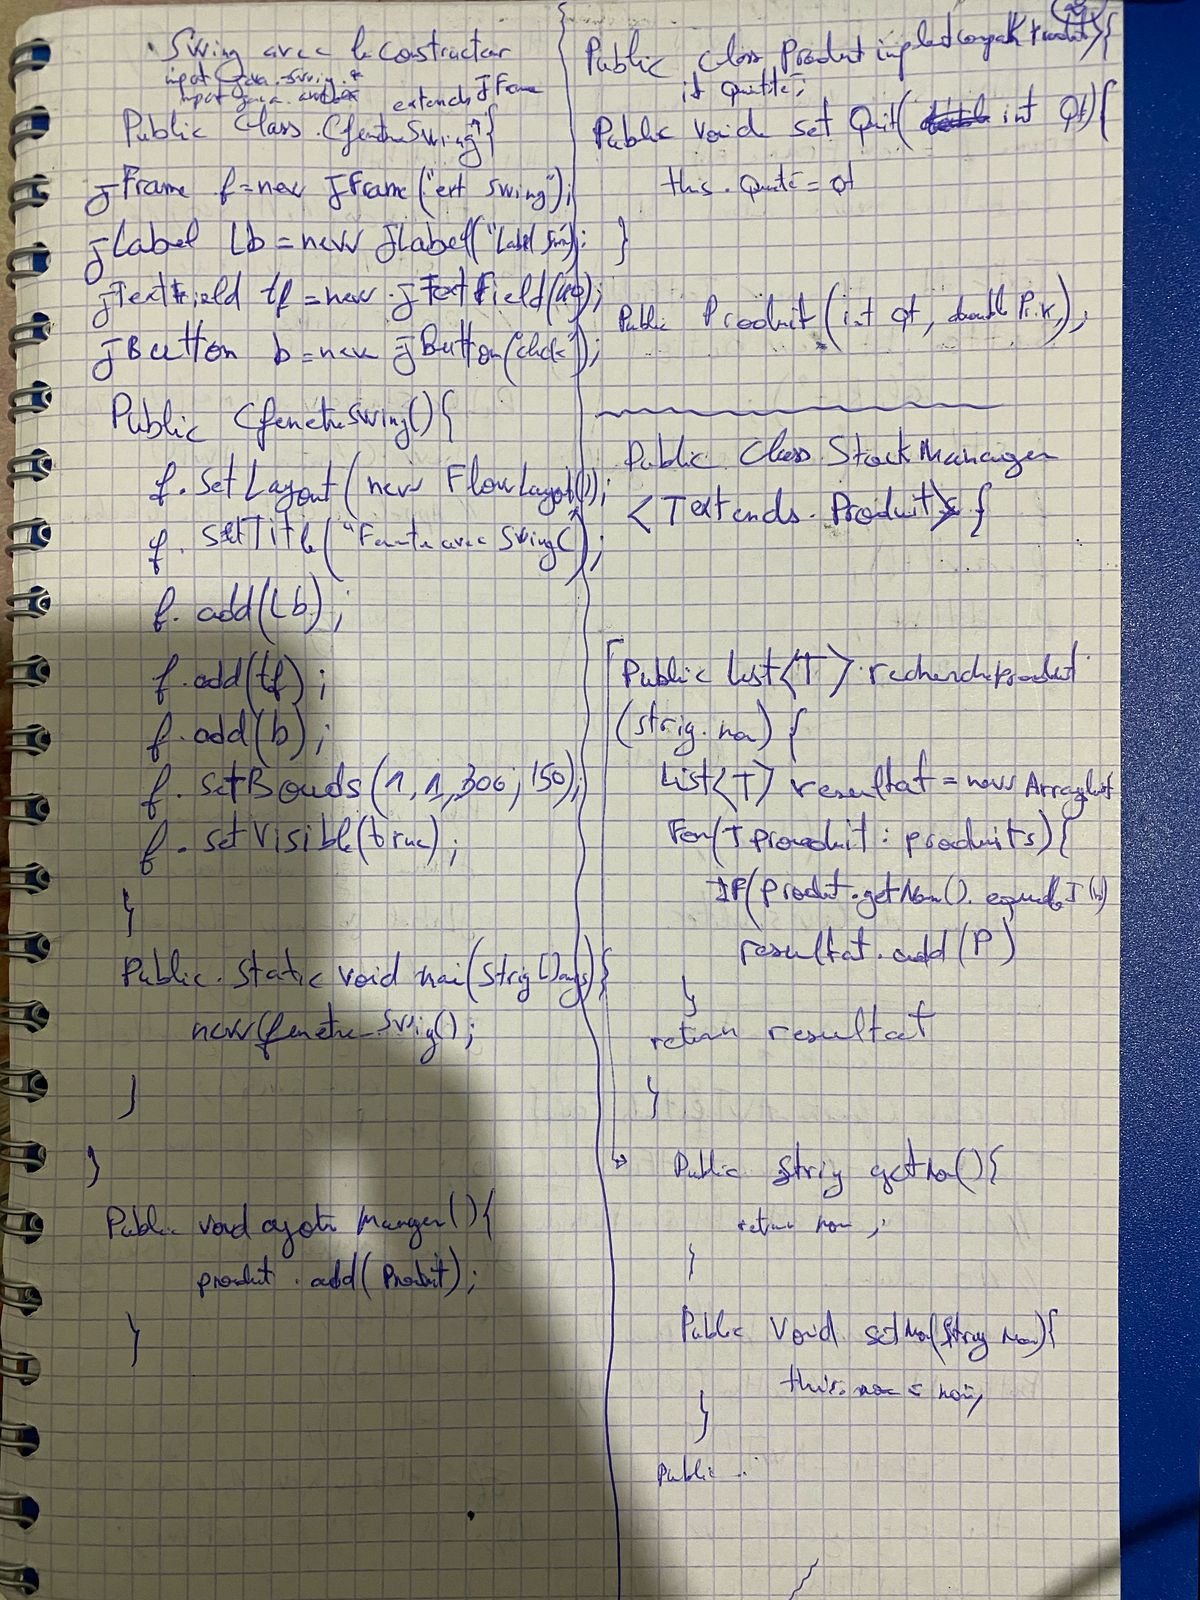 Swing avec le constructor
input java.swing.*
input java.awt.*
extends JFrame
Public Class CfenetreSwing {
JFrame f=new JFrame ("ert swing");
JLabel Lb = new JLabel("Label Swin);
JTextField tf = new JTextField(40);
JButton b=new JButton("click");
Public CfenetreSwing(){
f.setLayout(new FlowLayout());
f.setTitle("Fenetre avec Swing");
f.add(Lb);
f.add(tf);
f.add(b);
f.setBouds(1,1,300,150);
f.setVisible(true);
}
Public Static void mai(Strig[]args){
new CfenetreSwig();
}
}
Public void ajoute Manger(){
produit.add(Produit);
}
Public Class Produit implement <Produit>{
it Quitte;
Public void set Quit( int Qt){
this.Quite = qt
}
Public Produit(int qt, double Prix);
Public Class StockManager
<T extends Produit> {
Public List<T> rechercheproduit
(strig no) {
List<T> resultat = new Arraylist
For(T prouduit : produits){
IF(produit.getNom().equals
resultat.add(P)
}
return resultat
}
Public Strig getNo(){
return nom;
}
Public Void setNo(Strig Nom){
this.nom = nom;
}
Public ..